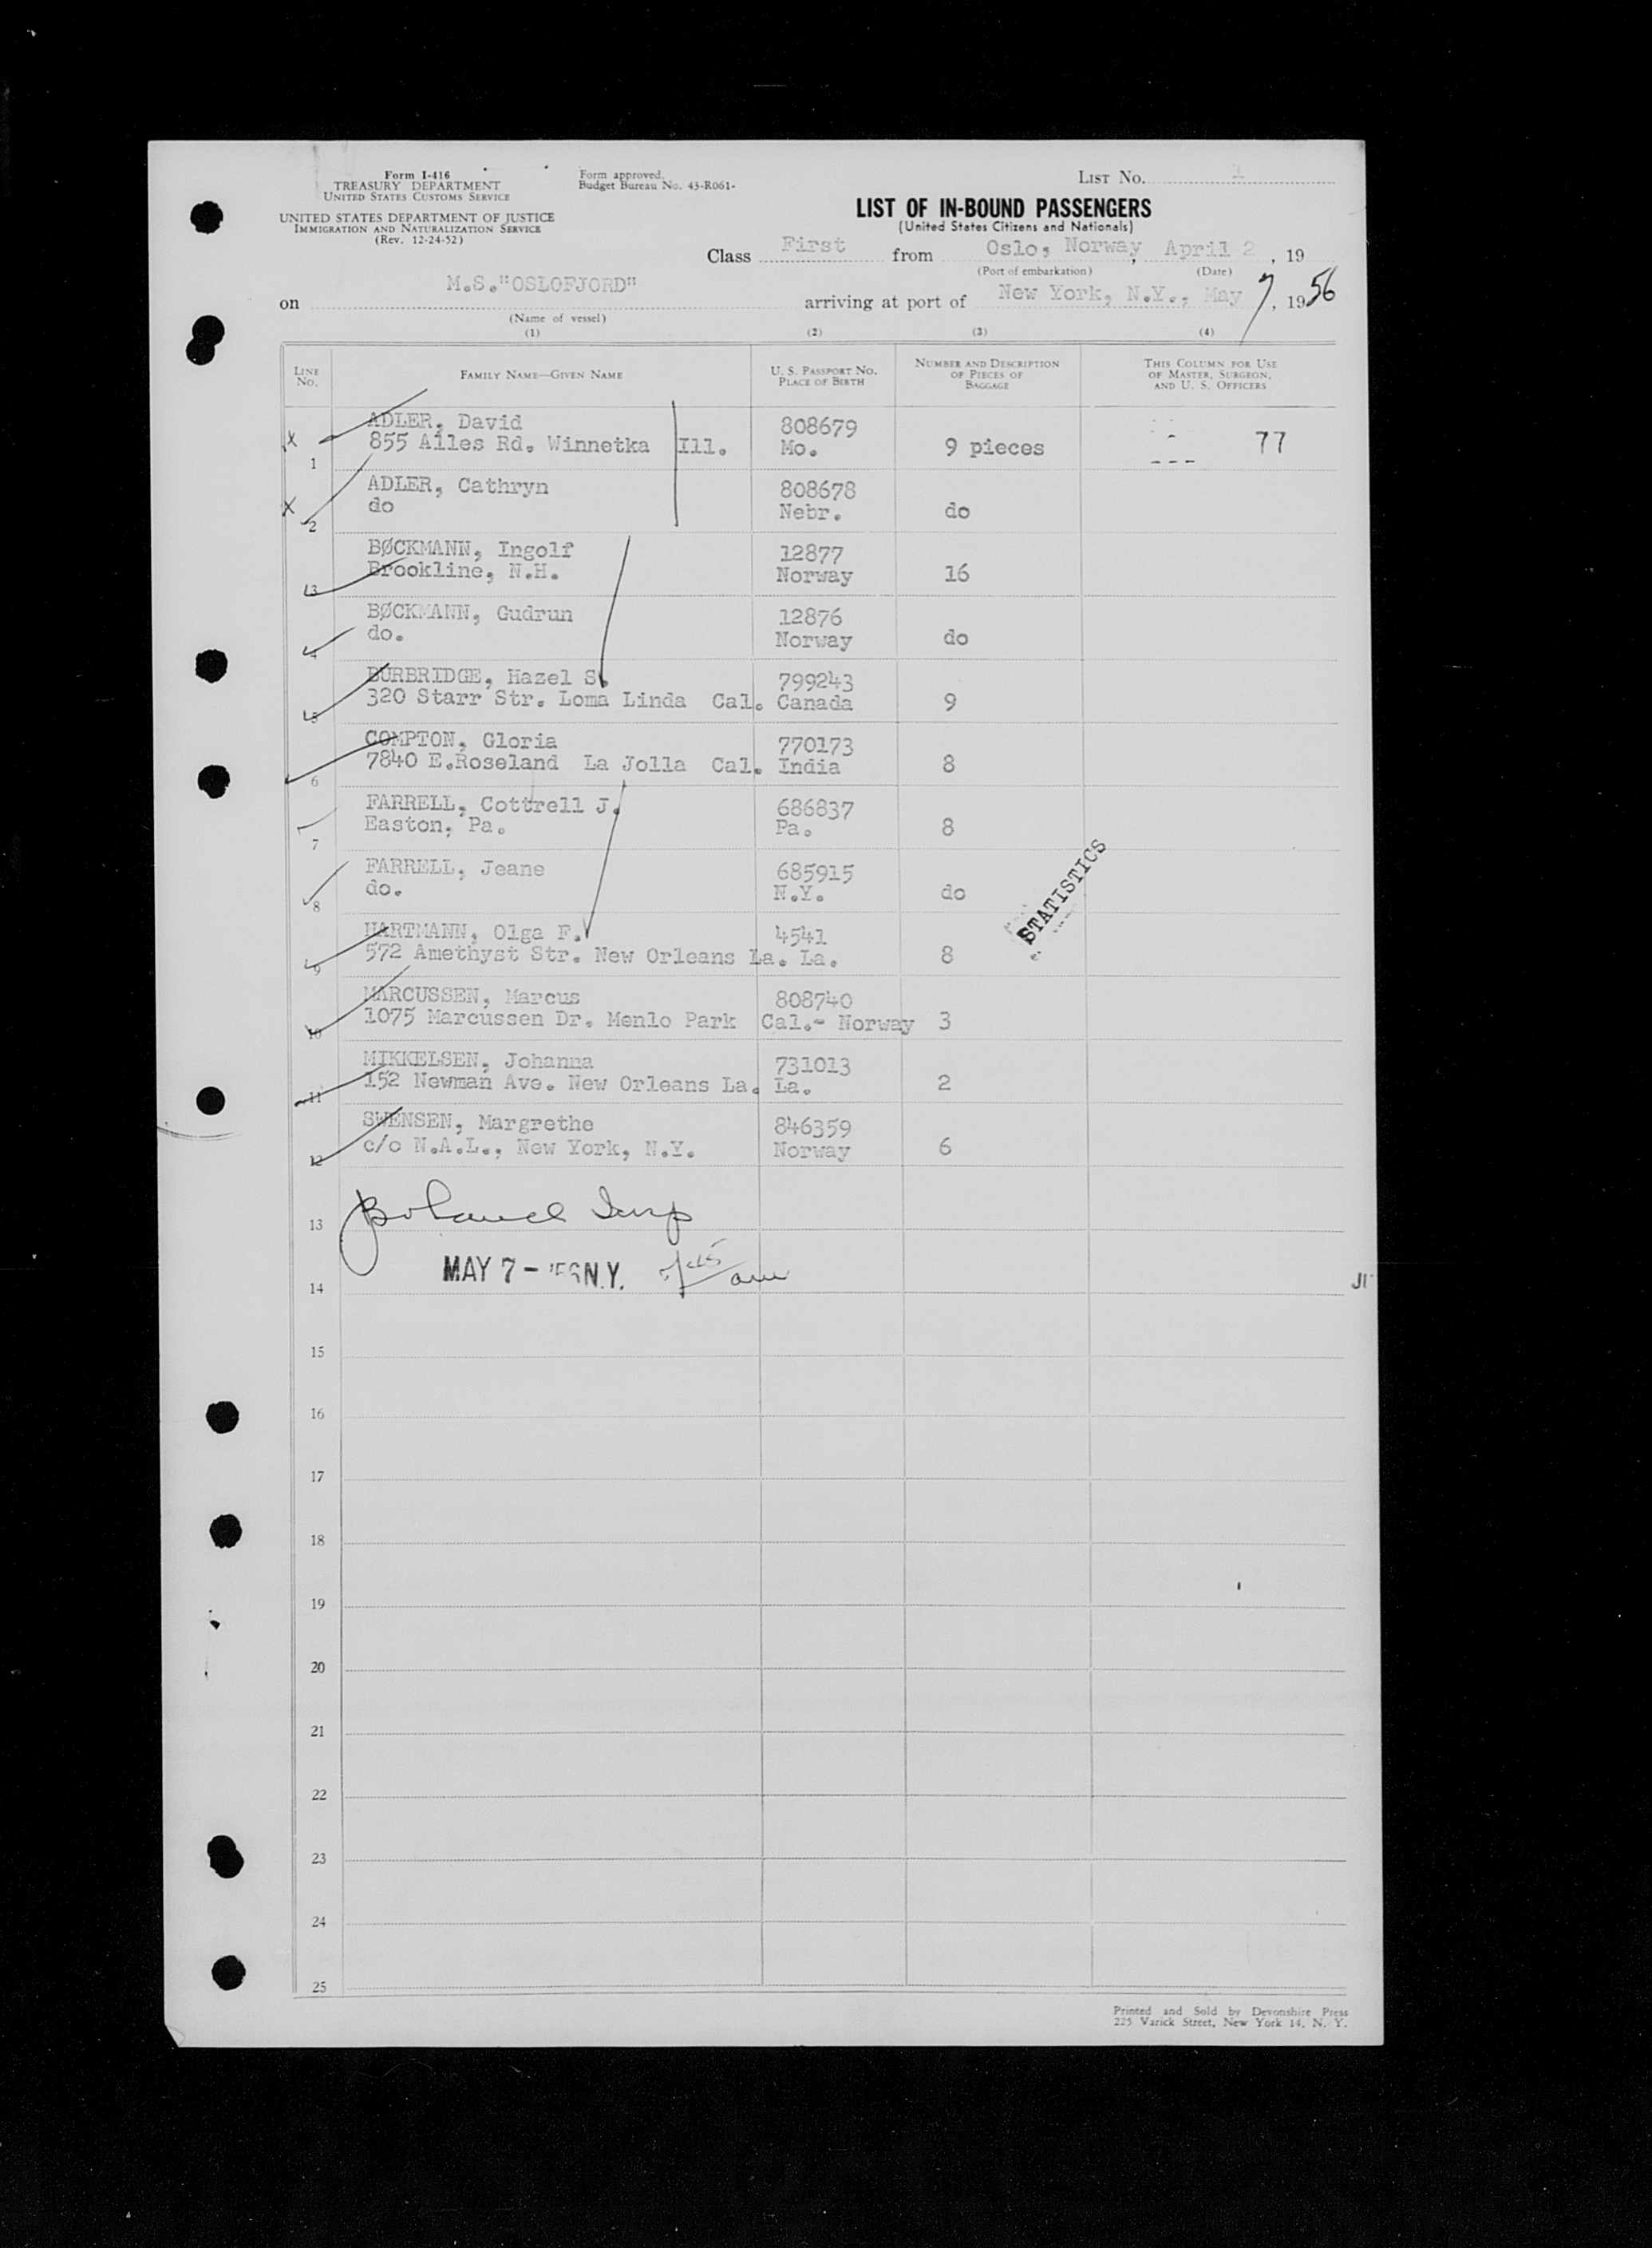 Form I-416
TREASURY DEPARTMENT
UNITED STATES CUSTOMS SERVICE
UNITED STATES DEPARTMENT OF JUSTICE
IMMIGRATION AND NATURALIZATION SERVICE
(Rev. 12-24-52)
Form approved.
Budget Bureau No. 43-R061-
LIST NO.
LIST OF IN-BOUND PASSENGERS
(United States Citizens and Nationals)
Class First from Oslo, Norway, April 2, 19
(Port of embarkation) (Date)
on M.S."OSLOFJORD" arriving at port of New York, N.Y., May 7, 1956
(Name of vessel)
(1) (2) (3) (4)
LINE NO.
FAMILY NAME—GIVEN NAME
U. S. PASSPORT NO.
PLACE OF BIRTH
NUMBER AND DESCRIPTION
OF PIECES OF
BAGGAGE
THIS COLUMN FOR USE
OF MASTER, SURGEON,
AND U. S. OFFICERS
ADLER, David 808679
X 855 Ailes Rd. Winnetka Ill. Mo. 9 pieces 77
1
ADLER, Cathryn 808678
X do Nebr. do
2
BØCKMANN, Ingolf 12877
Brookline, N.H. Norway 16
3
BØCKMANN, Gudrun 12876
do. Norway do
4
BURBRIDGE, Hazel S. 799243
320 Starr Str. Loma Linda Cal. Canada 9
5
COMPTON, Gloria 770173
7840 E.Roseland La Jolla Cal. India 8
6
FARRELL, Cottrell J. 686837
Easton, Pa. Pa. 8
7
FARRELL, Jeane 685915
do. N.Y. do
8
STATISTICS
HARTMANN, Olga F. 4541
572 Amethyst Str. New Orleans La. La. 8
9
MARCUSSEN, Marcus 808740
1075 Marcussen Dr. Menlo Park Cal.- Norway 3
10
MIKKELSEN, Johanna 731013
152 Newman Ave. New Orleans La. La. 2
11
SWENSEN, Margrethe 846359
c/o N.A.L., New York, N.Y. Norway 6
12
13
MAY 7 - '56 N.Y.
14
15
16
17
18
19
20
21
22
23
24
25
Printed and Sold by Devonshire Press
225 Varick Street, New York 14, N. Y.